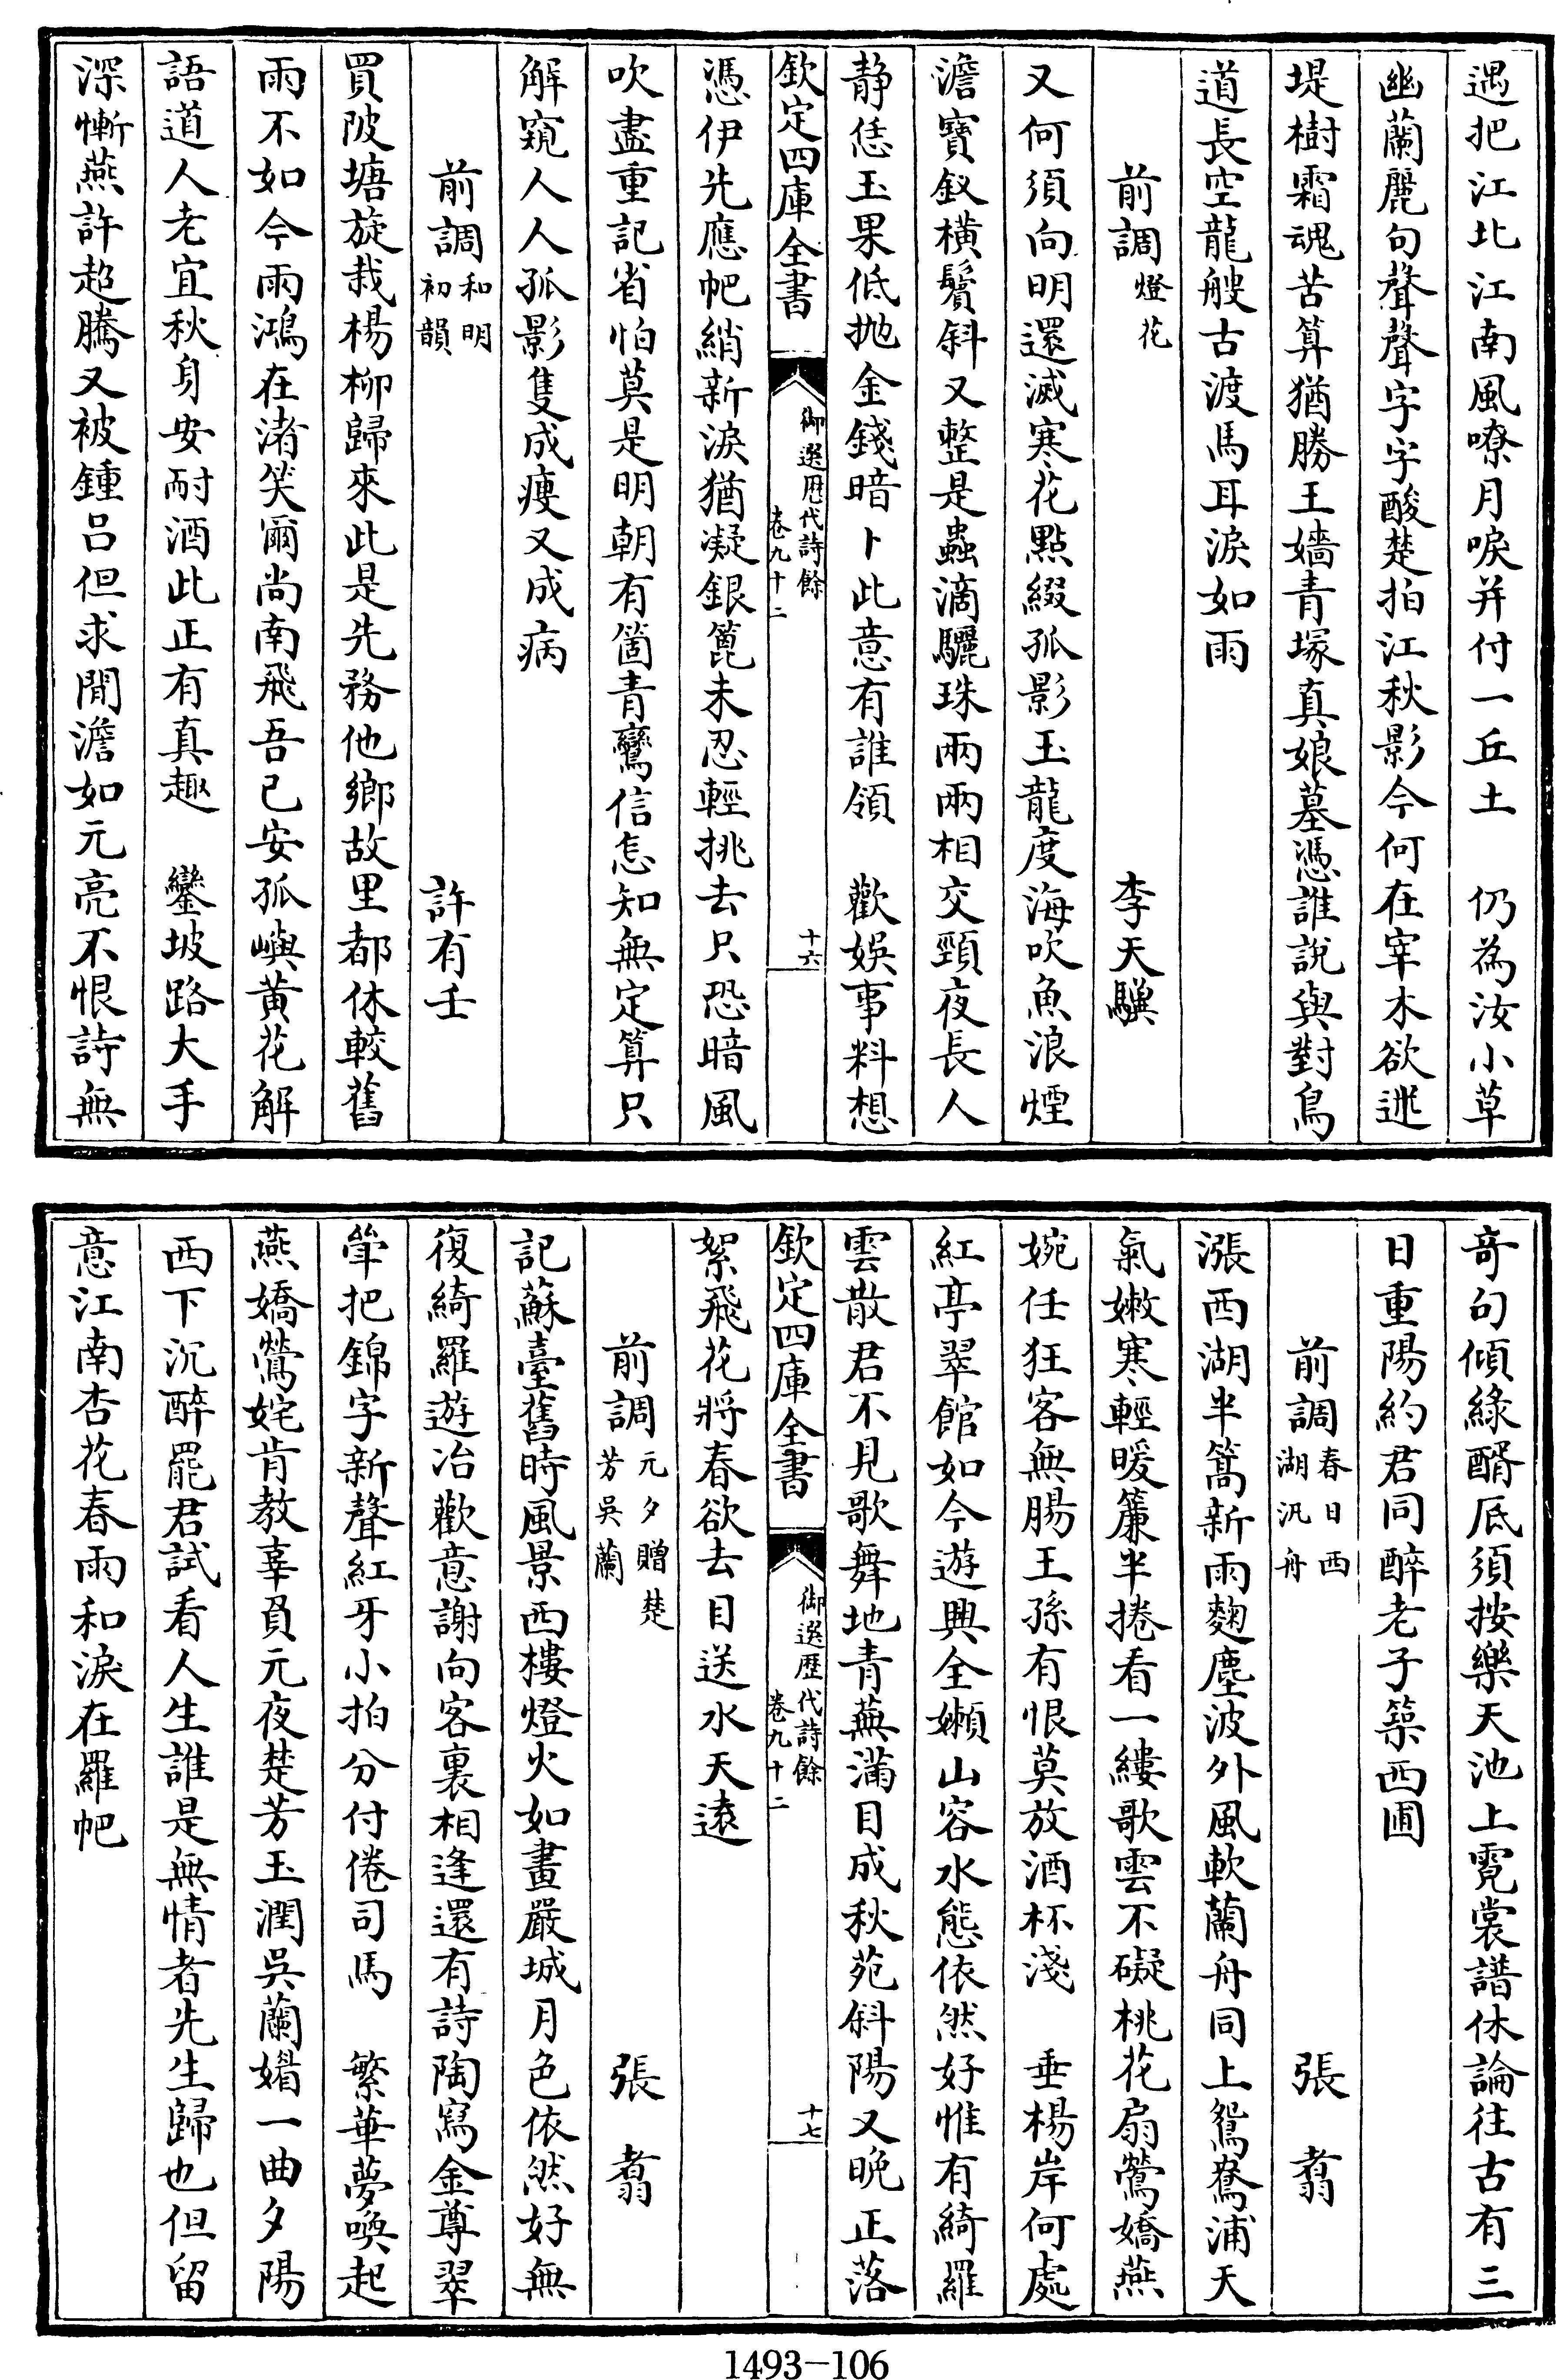 遇把江北江南風嘹月唳并付一丘土　仍為汝小草
幽蘭麗句聲聲字字酸楚拍江秋影今何在宰木欲迷
堤樹霜魂苦算猶勝王嬙青塚真娘墓憑誰說與對鳥
道長空龍艘古渡馬耳淚如雨
前調燈花　李天驥
又何須向明還滅寒花點綴孤影玉龍度海吹魚浪煙
澹寶釵橫鬢斜又整是蟲滴驪珠兩兩相交頸夜長人
静恁玉果低拋金錢暗卜此意有誰領　歡娛事料想
欽定四庫全書　御選歷代詩餘　卷九十二　十六
憑伊先應帊綃新淚猶凝銀篦未忍輕挑去只恐暗風
吹盡重記省怕莫是明朝有箇青鸞信怎知無定算只
解窺人人孤影隻成瘦又成病
前調和明初韻　許有壬
買陂塘旋栽楊柳歸來此是先務他鄉故里都休較舊
雨不如今雨鴻在渚笑爾尚南飛吾已安孤嶼黃花解
語道人老宜秋身安耐酒此正有真趣　鑾坡路大手
深慚燕許超騰又被鍾呂但求閒澹如元亮不恨詩無
奇句傾綠醑底須按樂天池上霓裳譜休論往古有三
日重陽約君同醉老子築西圃
前調春日西湖汎舟　張翥
漲西湖半篙新雨麴塵波外風軟蘭舟同上鴛鴦浦天
氣嫩寒輕暖簾半捲看一縷歌雲不礙桃花扇鶯嬌燕
婉任狂客無腸王孫有恨莫放酒杯淺　垂楊岸何處
紅亭翠館如今遊興全嬾山容水態依然好惟有綺羅
雲散君不見歌舞地青蕪滿目成秋苑斜陽又晚正落
欽定四庫全書　御選歷代詩餘　卷九十二　十七
絮飛花將春欲去目送水天遠
前調元夕贈楚芳吳蘭　張翥
記蘇臺舊時風景西樓燈火如晝嚴城月色依然好無
復綺羅遊冶歡意謝向客裏相逢還有詩陶寫金尊翠
斝把錦字新聲紅牙小拍分付倦司馬　繁華夢喚起
燕嬌鶯姹肯教辜負元夜楚芳玉潤吳蘭媚一曲夕陽
西下沉醉罷君試看人生誰是無情者先生歸也但留
意江南杏花春雨和淚在羅帊
1493-106